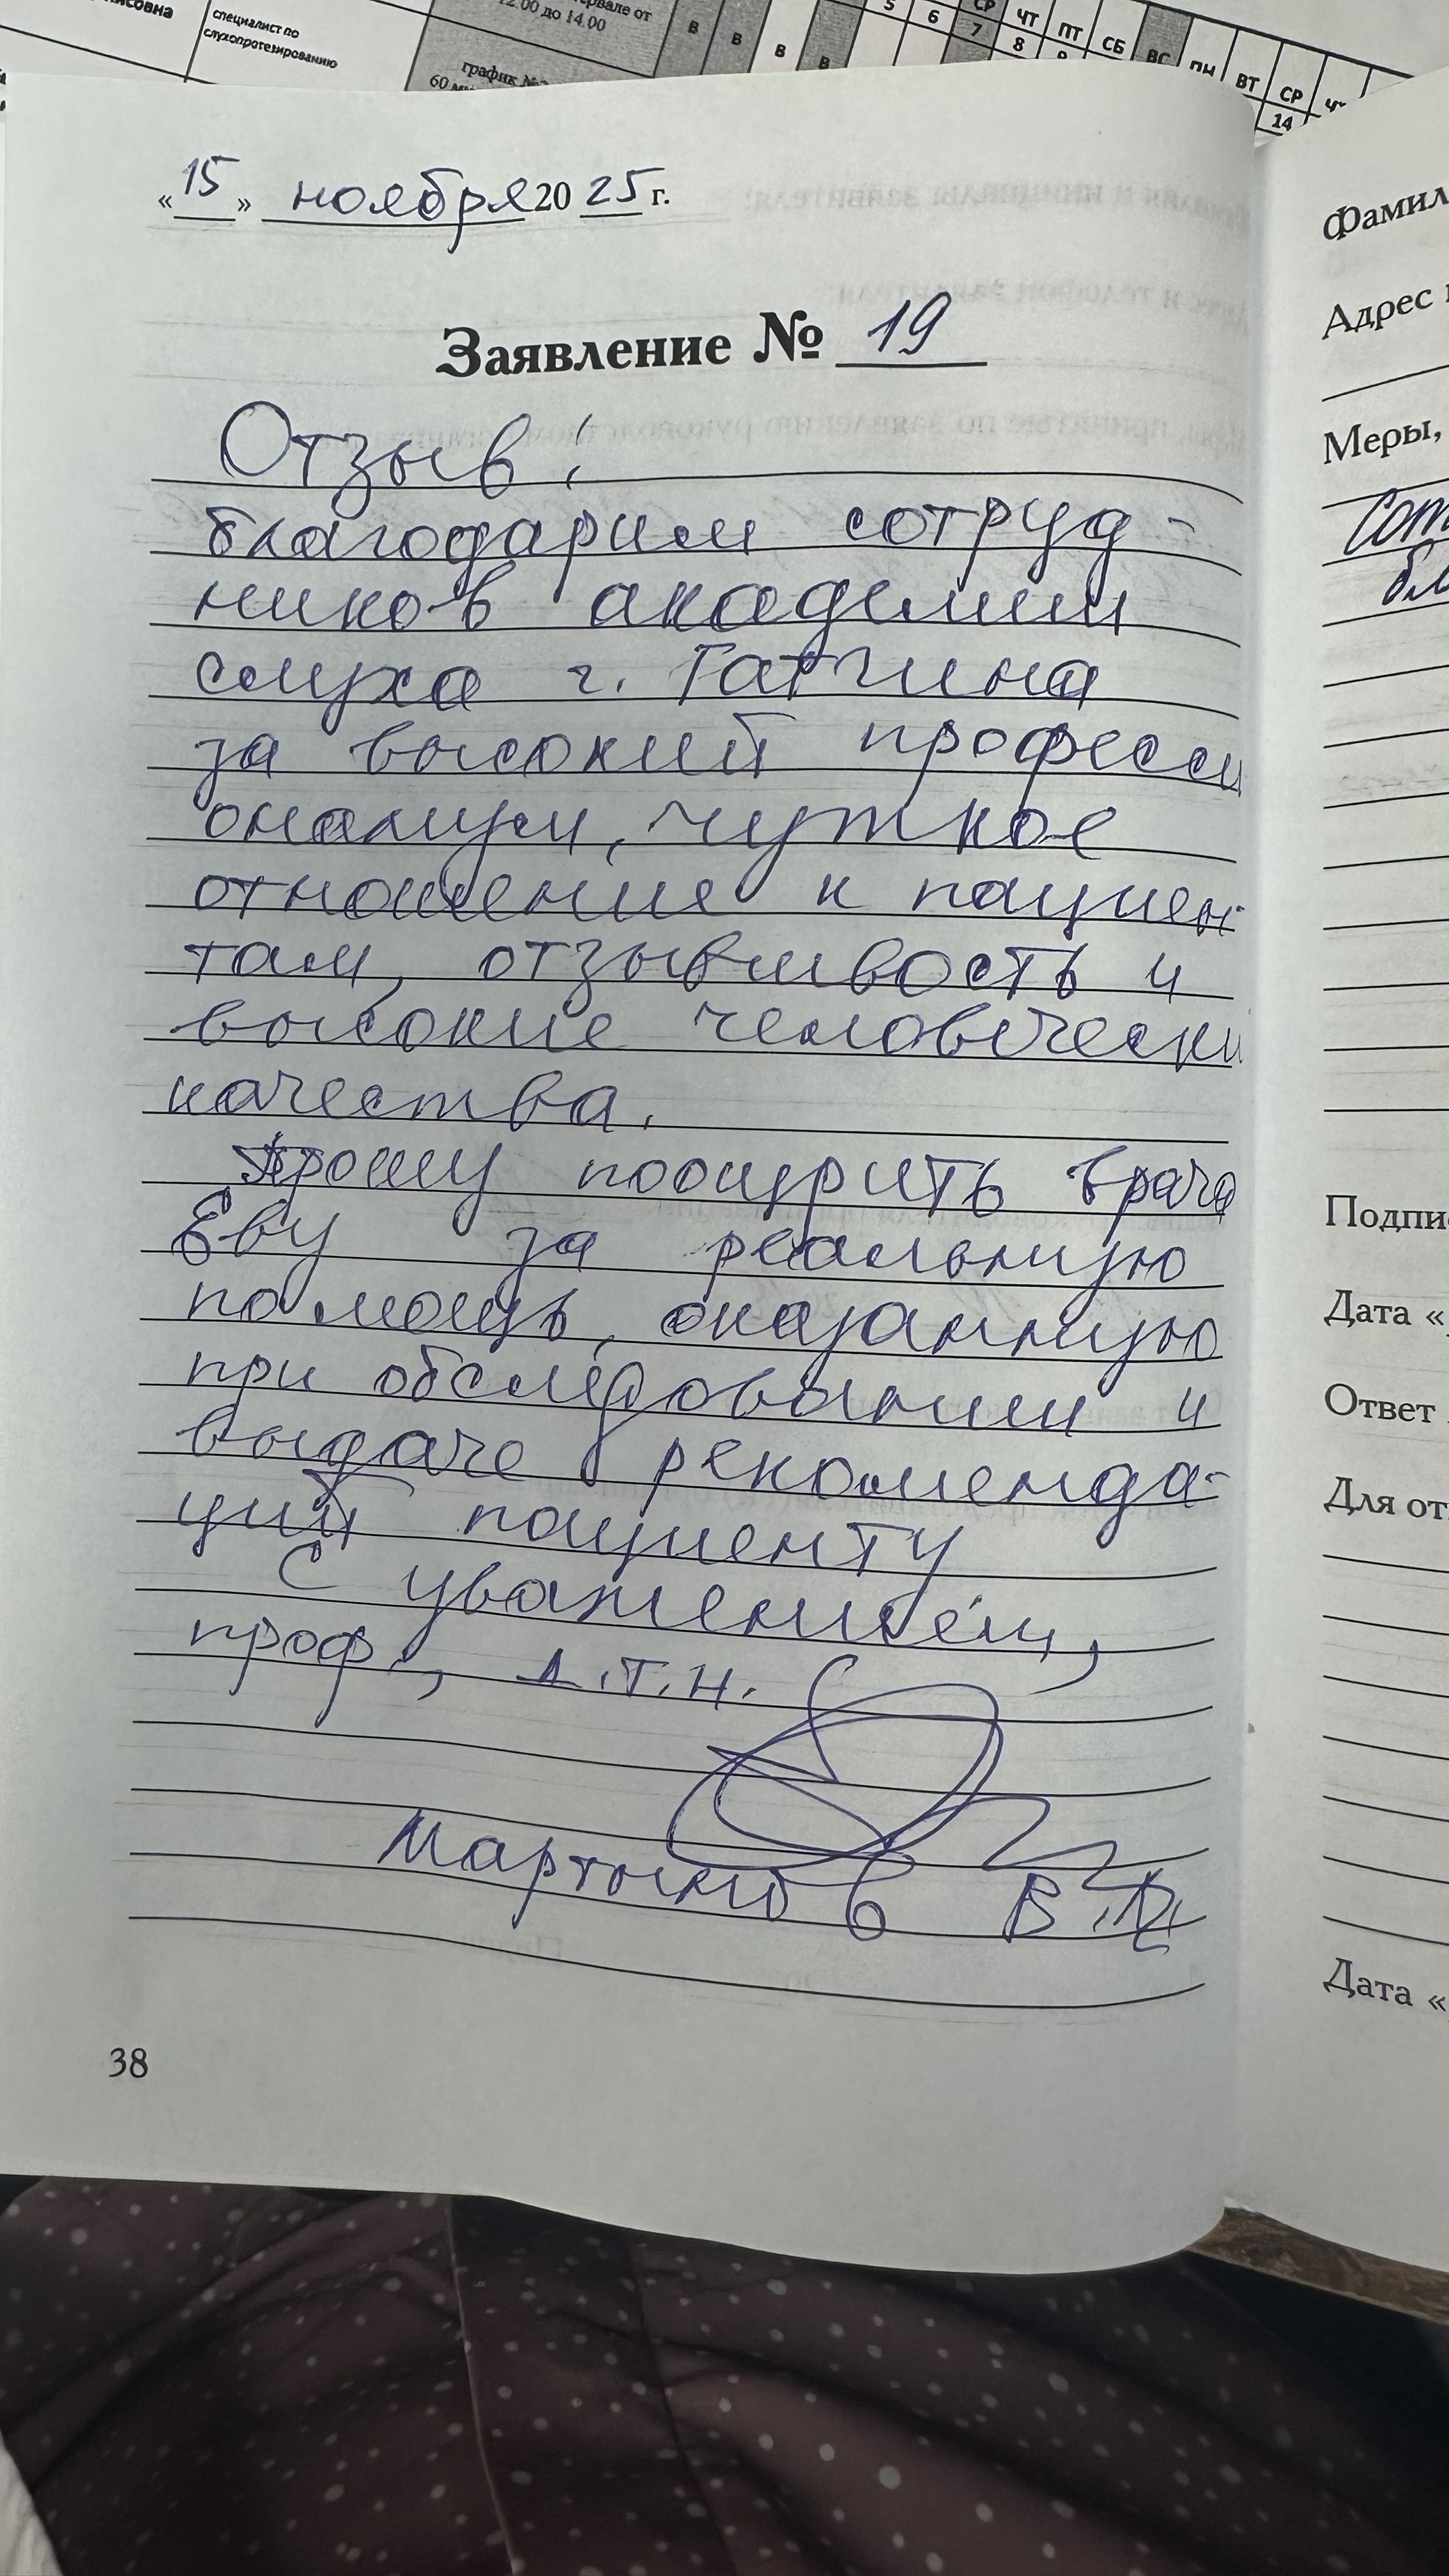 исовна
специалист по
слухопротезированию
рвале от
12.00 до 14.00
график №
60
В В В В
5 6 7 8
СР ЧТ ПТ СБ ВС ПН ВТ СР
14
«15» ноября 2025 г.
Заявление № 19
Отзыв!
благодарим сотруд-
ников академии
слуха г. Гатчина
за высокий професси
онализм, чуткое
отношение к пациен-
там, отзывчивость и
высокие человечески
качества.
Прошу поощрить врача
Еву за реальную
помощь, оказанную
при обследовании и
выдаче рекоменда-
ций пациенту
С уважением,
проф., д.т.н.
Мартынов В.
38
Фамил
Адрес
Меры,
Подпи
Дата «
Ответ
Для от
Дата «